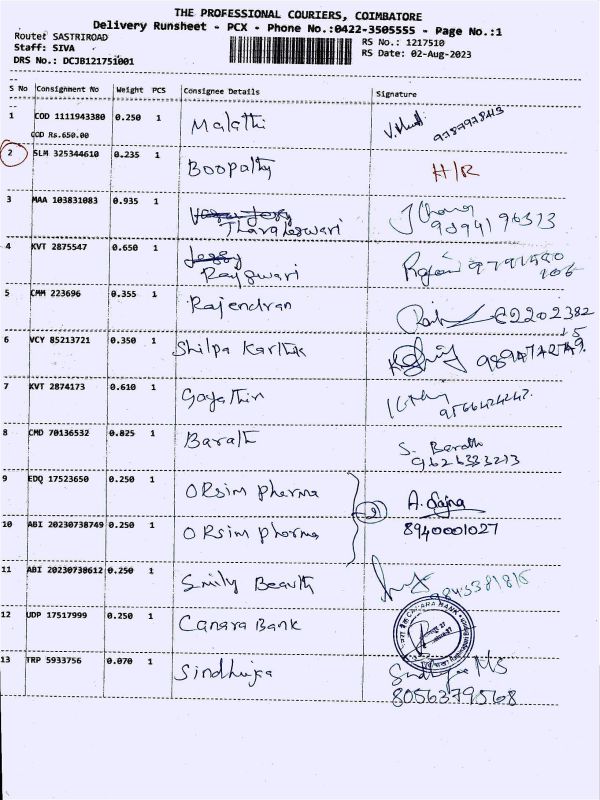 THE PROFESSIONAL COURIERS, COIMBATORE
Delivery Runsheet - PCX - Phone No.:0422-3505555 - Page No.:1
Route: SASTRIROAD
RS No.: 1217510
Staff: SIVA
RS Date: 02-Aug-2023
DRS No.: DCJB121751001
S No Consignment No Weight PCS Consignee Details Signature
1 COD 1111943380 0.250 1 Malathi
COD Rs.650.00
2 SLM 325344610 0.235 1 Boopathy H/R
3 MAA 103831083 0.935 1
4 KVT 2875547 0.650 1
5 CMM 223696 0.355 1 Rajendran
6 VCY 85213721 0.350 1 Shilpa Karthik
7 KVT 2874173 0.610 1 Gayathiri
8 CMD 70136532 0.825 1 Barath S. Barath
9626333213
9 EDQ 17523650 0.250 1 ORsim pharma
10 ABI 20230738749 0.250 1 ORsim pharma 8940001027
11 ABI 20230738612 0.250 1 Smily Beauth
12 UDP 17517999 0.250 1 Canara Bank
CANARA BANK
13 TRP 5933756 0.070 1 Sindhujaa
8056379568